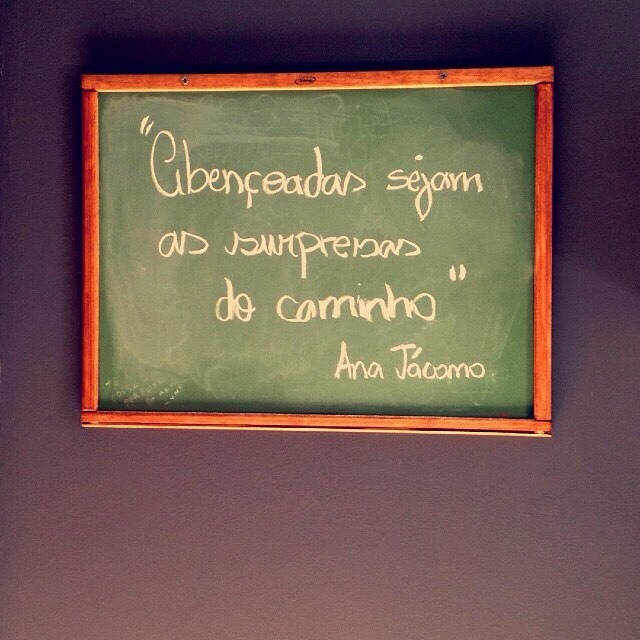 "Abençoadas sejam
as surpresas
do caminho"
Ana Jácomo